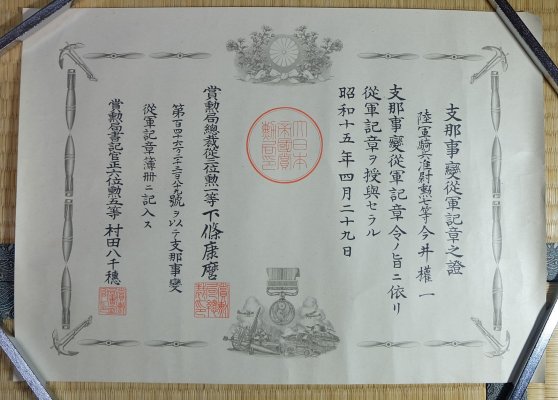 支那事變從軍記章之證
陸軍騎兵准尉勲七等今井權一
支那事變從軍記章令ノ旨ニ依リ
從軍記章ヲ授與セラル
昭和十五年四月二十九日
大日本帝國賞勲局印
賞勲局總裁從三位勲一等下條康麿
賞勲局總裁印
號ヲ以テ支那事變
從軍記章簿册ニ記入ス
賞勲局書記官正六位勲五等村田八千穗